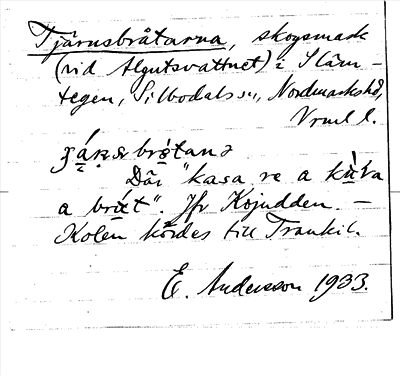 Tjärnsbråtarna, skogsmark
(vid Algutsvattnet) i Släm-
tegen, Silbodals sn, Nordmarks hd,
Vrml l.
brǫ́tana
Där "kasa re a
a                ". Jfr Kojudden. –
Kolen kördes till Trankil.
E. Andersson 1933.